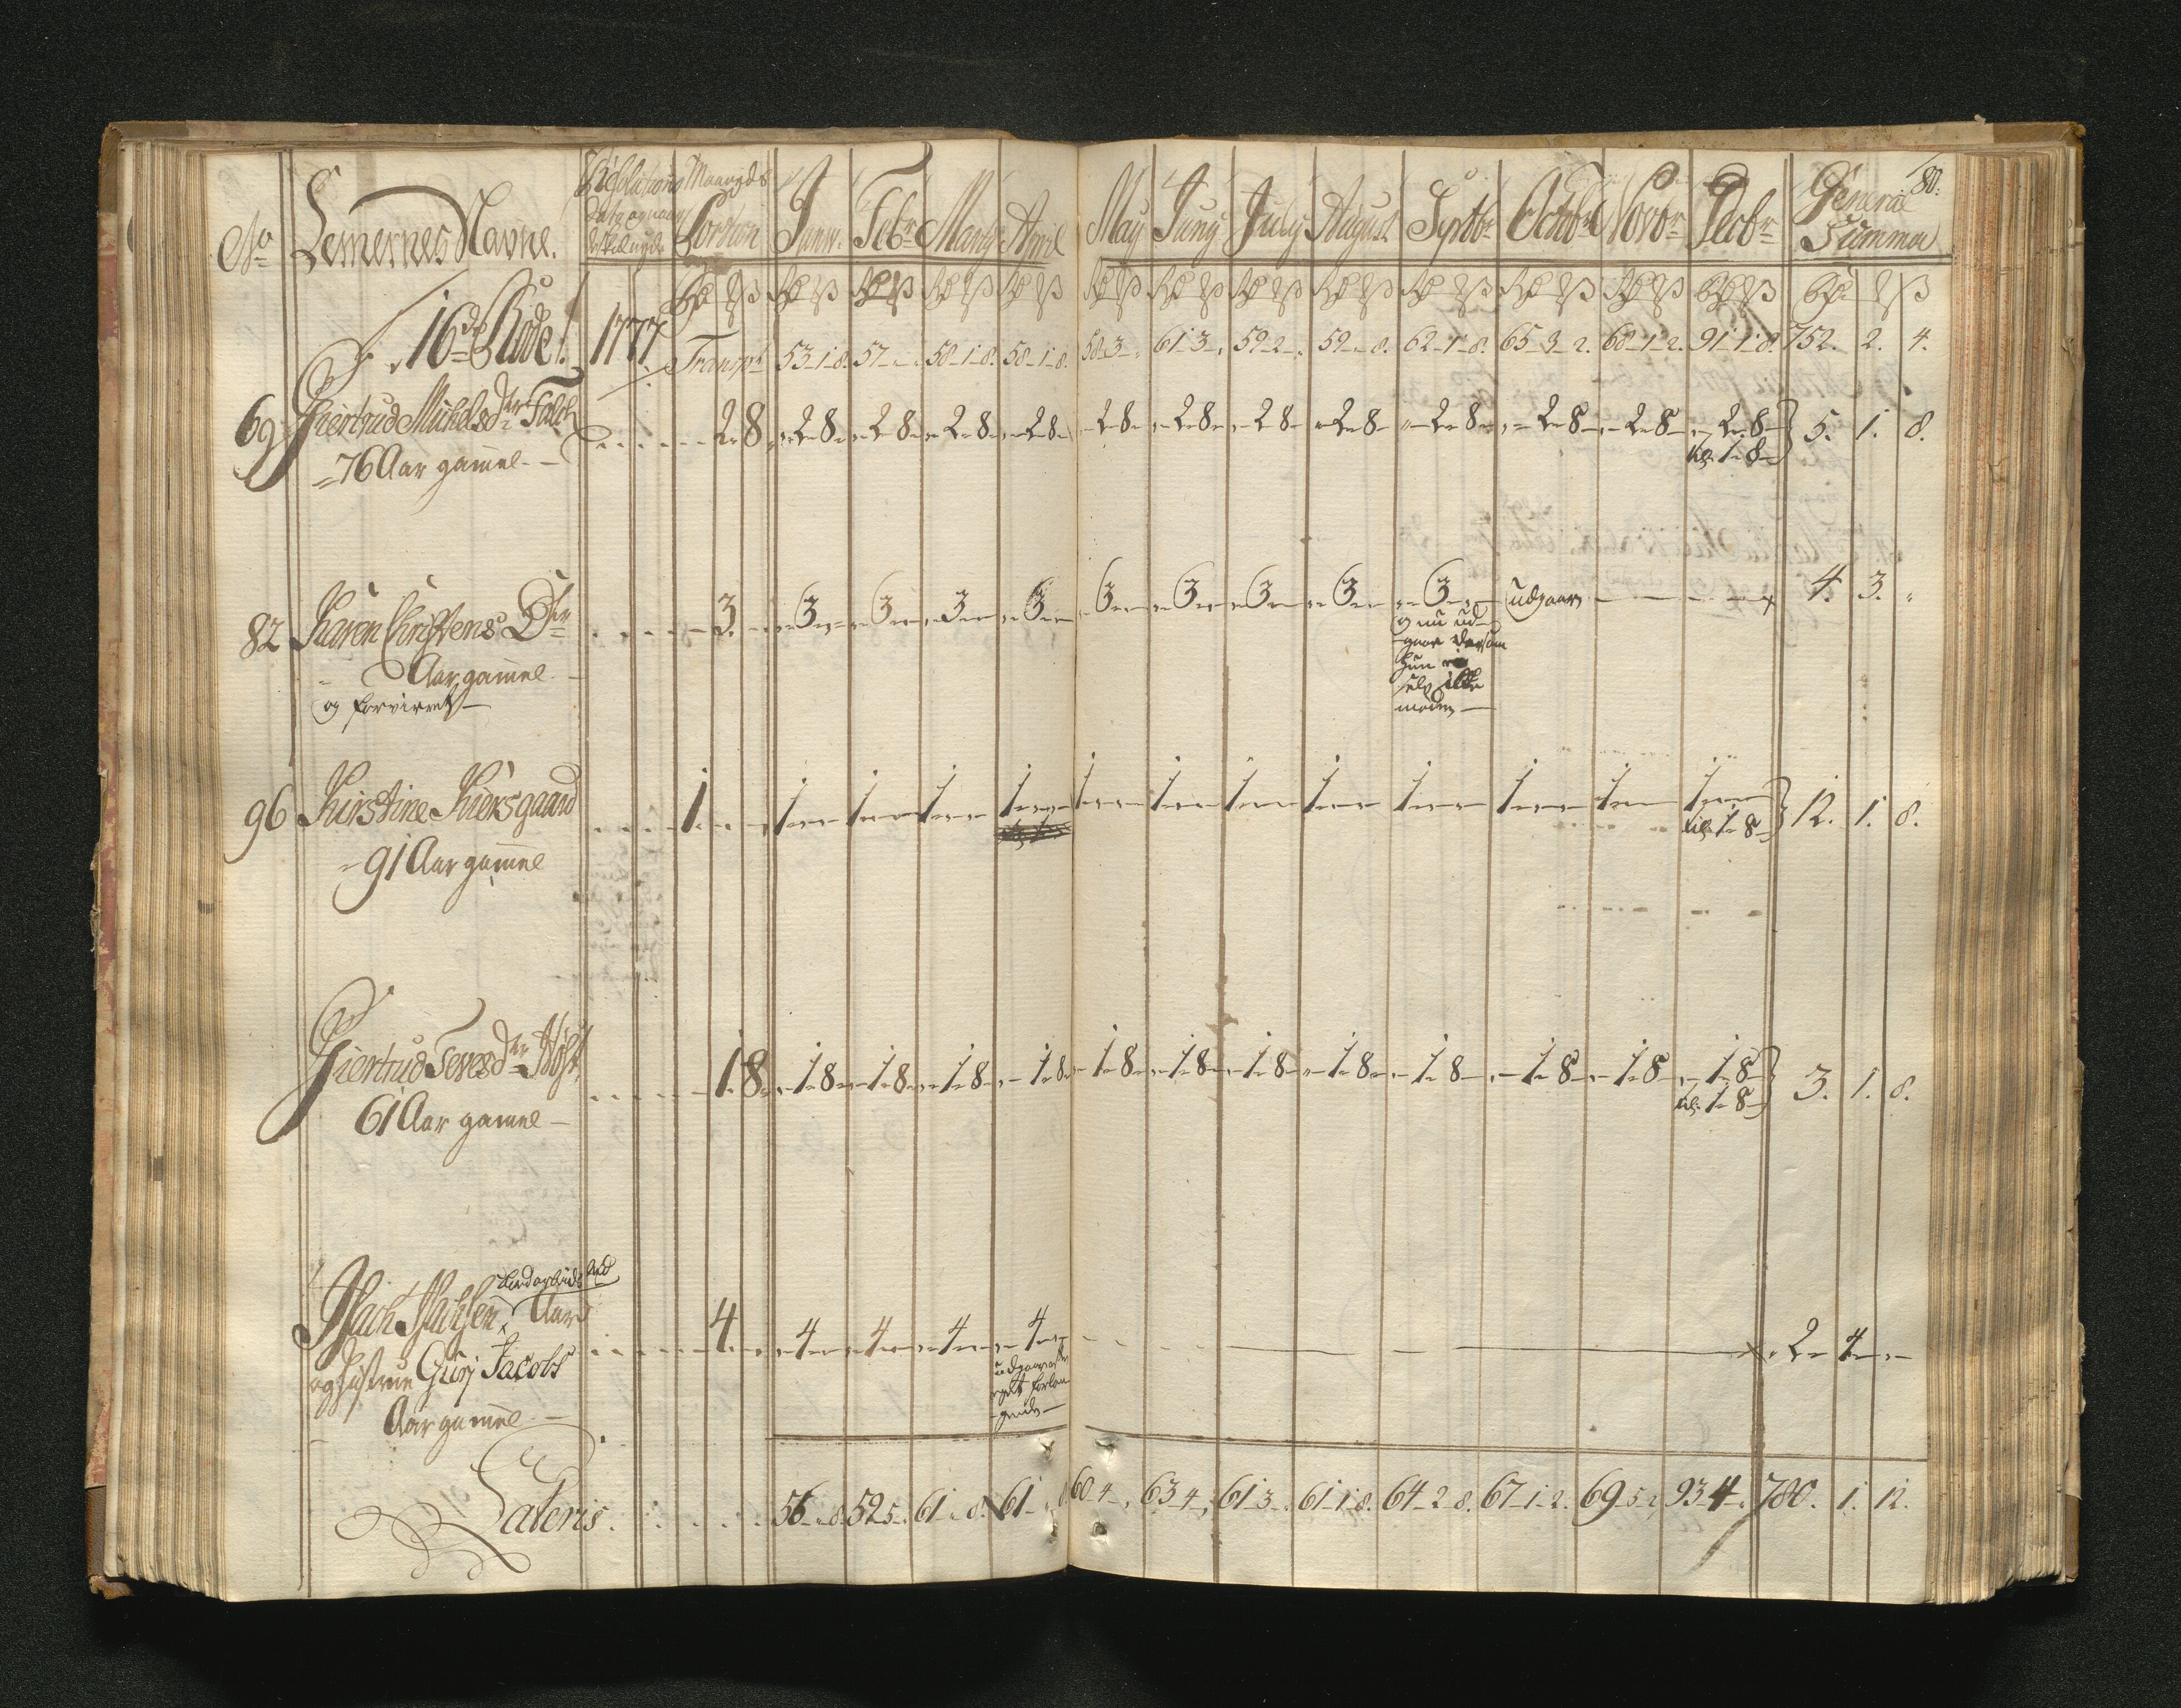 80.
No Lemernes Navne. Resolutions Maaneds Portion Janv. Febr Marty April May Juny July August Septbr Octobr Novbr Decbr General Summa
16de Rode. 1777 Transpt 53-1-8. 57-"-" 58-1-8. 58-1-8. 58-3-" 61-3-" 59-2-" 59-"-8. 62-1-8. 65-3-2. 68-1-2. 91-1-8. 752. 2. 4.
69 Giertrud Michelsdtr Falch 2-8 "-2-8 "-2-8 "-2-8 "-2-8 "-2-8 "-2-8 "-2-8 "-2-8 "-2-8 "-2-8 "-2-8 "-2-8 5. 1. 8.
76 Aar gamel til 1-8
82 Karen Christens Dtr 3 "-3-" "-3-" "-3-" "-3-" "-3-" "-3-" "-3-" "-3-" "-3-" udgaar 4. 3. "
Aar gamel
og forvirret
og nu ud-
gaar dersom
hun
selv ikke
møder
96 Kirstine Kiersgaard 1 1-"-" 1-"-" 1-"-" 1-"-" 1-"-" 1-"-" 1-"-" 1-"-" 1-"-" 1-"-" 1-"-" 1-"-" 12. 1. 8.
91 Aar gamel til 1-8
Giertrud Iversdtr Holst 1-8 "-1-8 "-1-8 "-1-8 "-1-8 "-1-8 "-1-8 "-1-8 "-1-8 "-1-8 "-1-8 "-1-8 "-1-8 3. 1. 8.
61 Aar gamel til 1-8
Isach Isachsen, Aar 4 "-4-" "-4-" "-4-" "-4-" "-2-4-"
og Hustrue Guri Jacobs
Aar gamel
udgaar
Lateris. 56-"-8. 59-5-" 61-"-8. 61-"-8 60-4-" 63-4-" 61-3-" 61-1-8. 64-2-8. 67-1-2. 69-5-2 93-4-" 780. 1. 12.